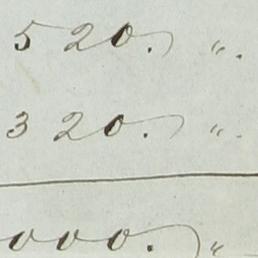 520. ".
320. ".
000. "